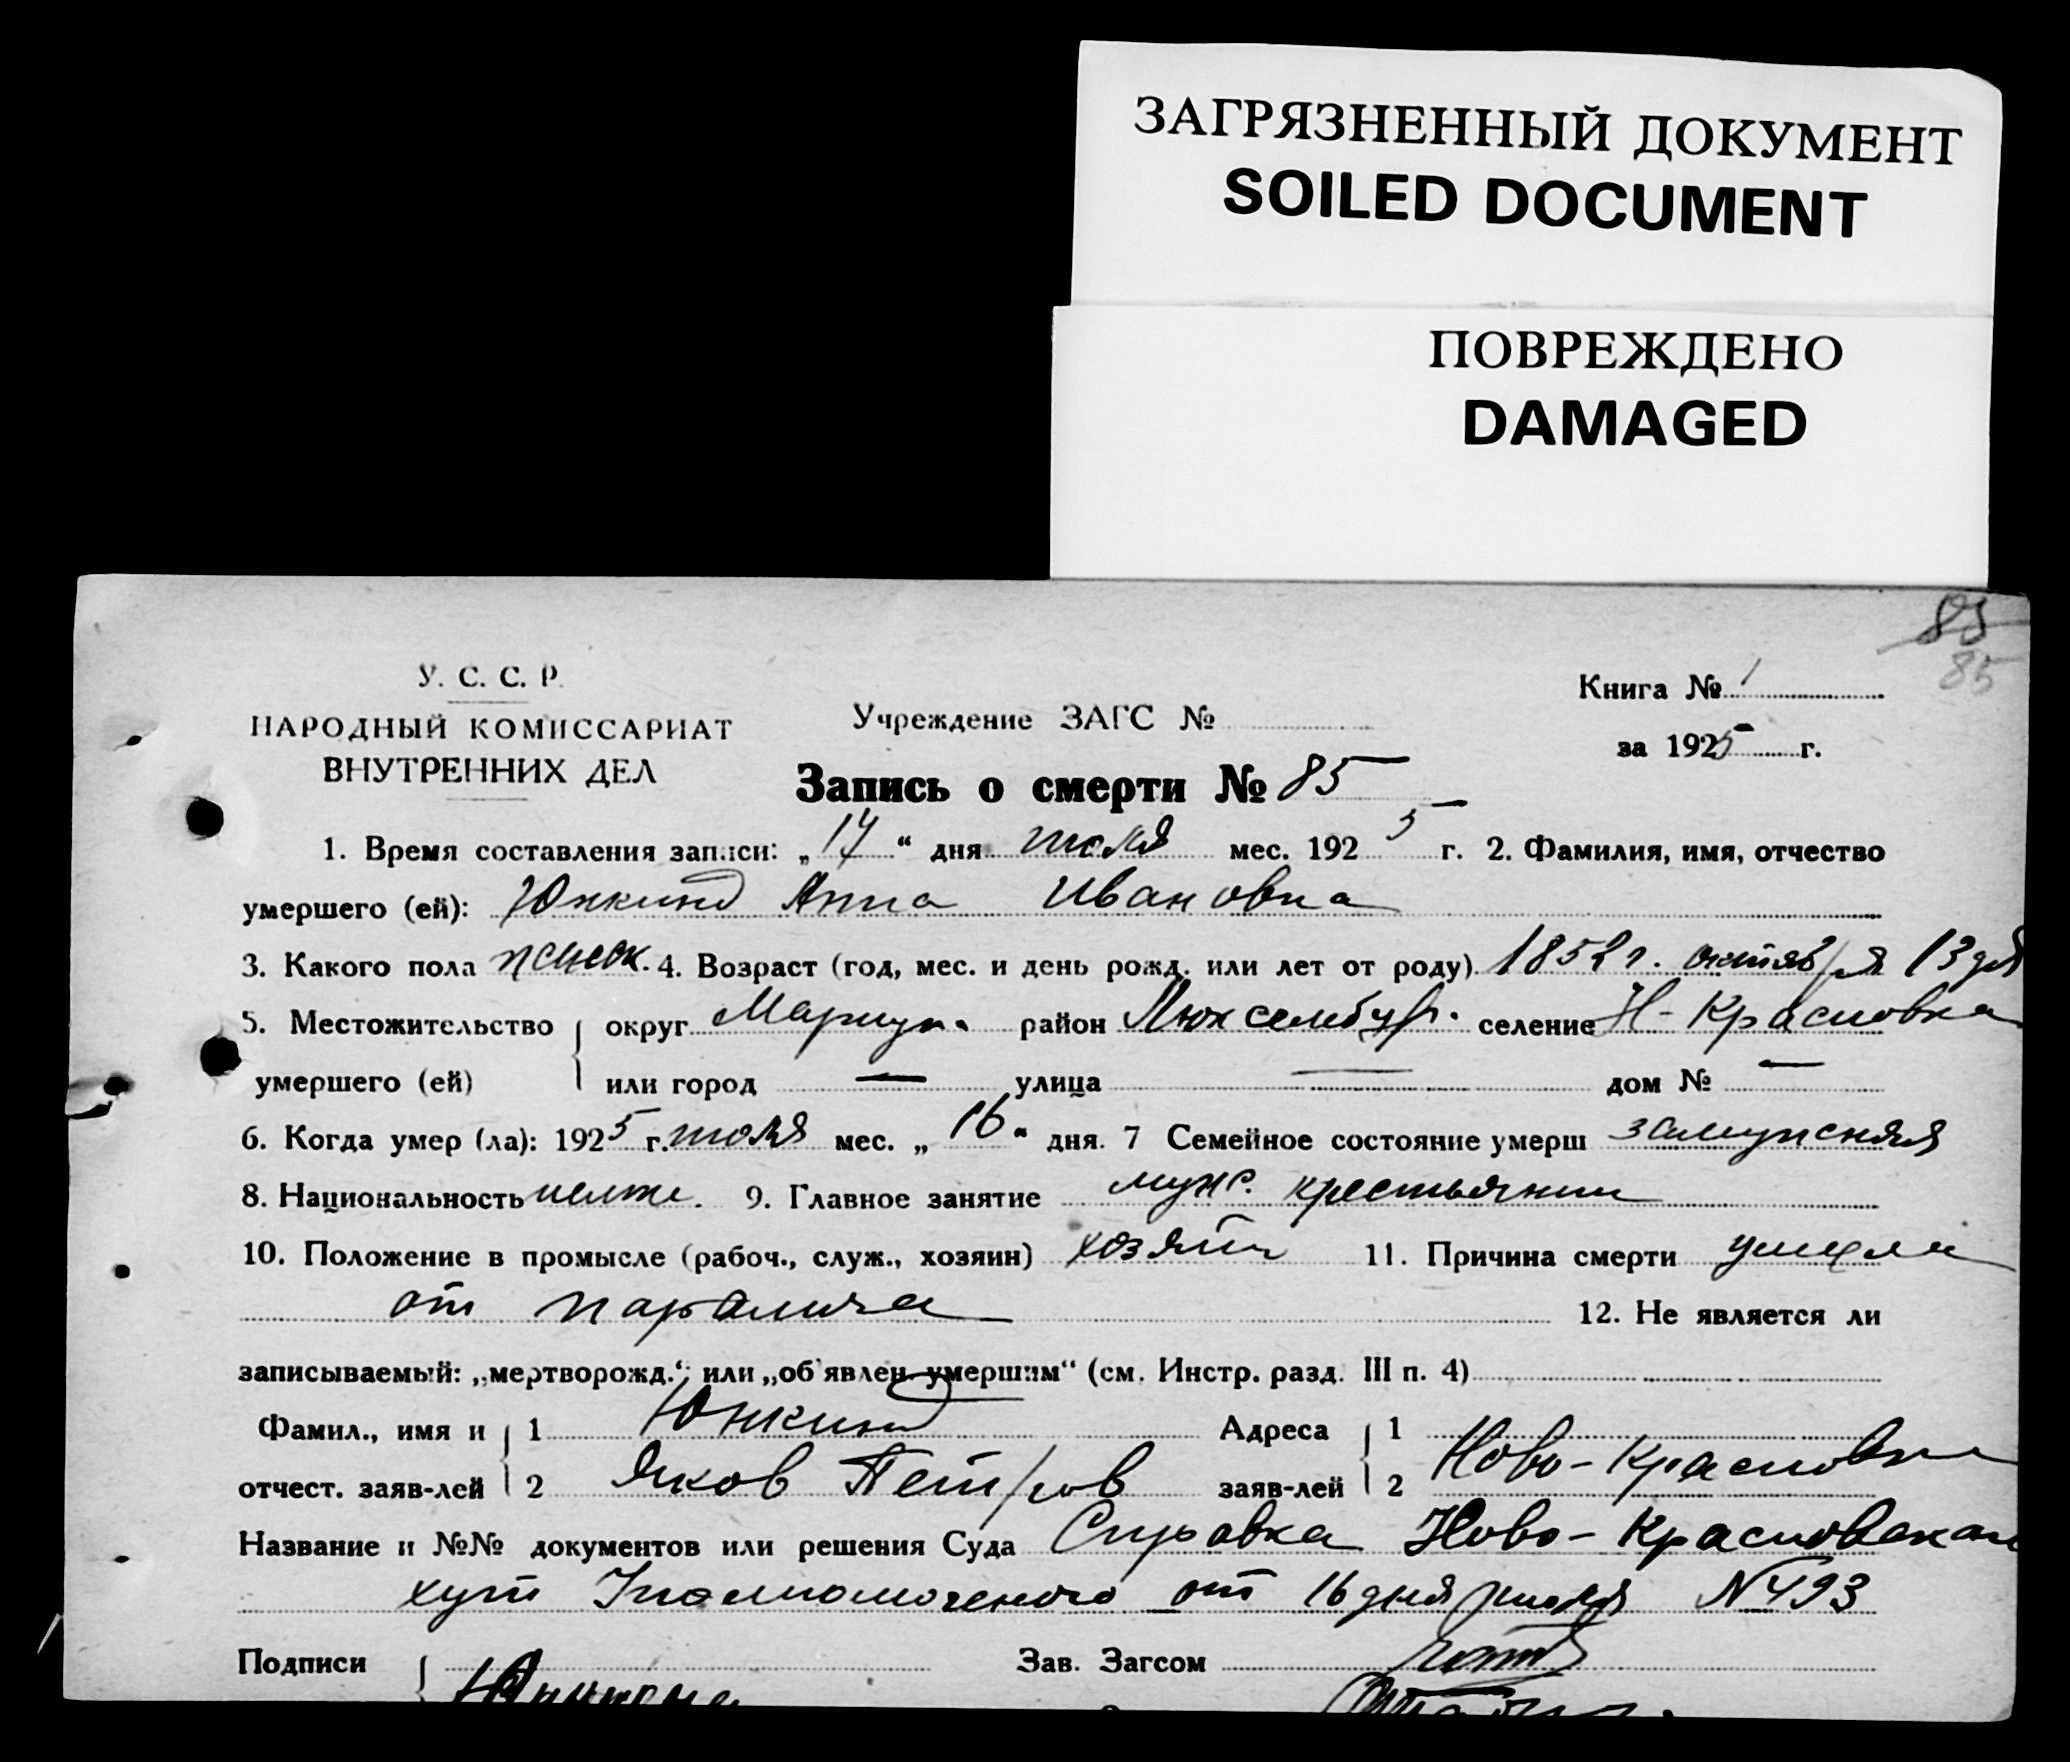 ЗАГРЯЗНЕННЫЙ ДОКУМЕНТ
SOILED DOCUMENT
ПОВРЕЖДЕНО
DAMAGED
85
85
У. С. С. Р.
НАРОДНЫЙ КОМИССАРИАТ
ВНУТРЕННИХ ДЕЛ
Учреждение ЗАГС №
Книга № 1
за 1925 г.
Запись о смерти № 85
1. Время составления записи: „17“ дня июля мес. 1925 г. 2. Фамилия, имя, отчество
умершего (ей): Юнкинд Анна Ивановна
3. Какого пола женск. 4. Возраст (год, мес. и день рожд. или лет от роду) 1852 г. октября 13 дня
5. Местожительство округ Мариуп. район Люксембург. селение Н-Красновка
умершего (ей) или город — улица — дом № —
6. Когда умер (ла): 1925 г. июля мес. „16“ дня. 7 Семейное состояние умерш замужняя
8. Национальность немк. 9. Главное занятие муж. крестьянин
10. Положение в промысле (рабоч., служ., хозяин) хозяин 11. Причина смерти умерла
от паралича 12. Не является ли
записываемый: „мертворожд.“ или „об'явлен умершим“ (см. Инстр. разд. III п. 4)
Фамил., имя и 1 Юнкинд Адреса 1
отчест. заяв-лей 2 Яков Петров заяв-лей 2 Ново-Красновка
Название и №№ документов или решения Суда Справка Ново-Красновская
хут Уполномоченого от 16 дня июля № 493
Подписи Зав. Загсом